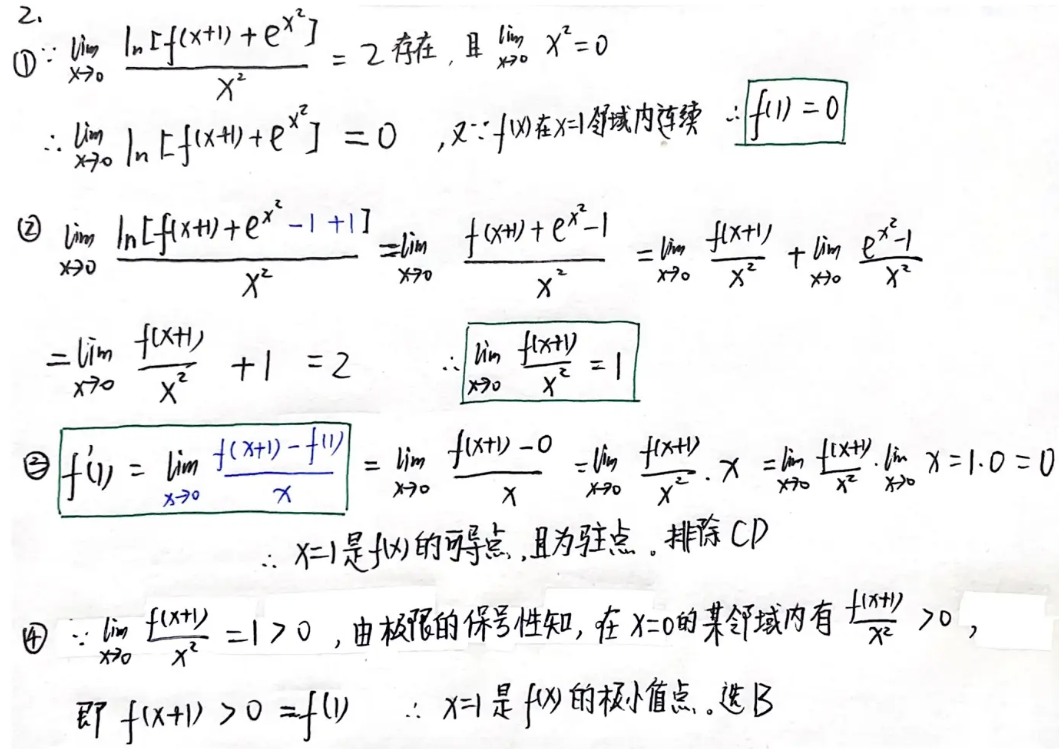 2.
① ∵ lim_{x→0} ln[f(x+1)+e^{x²}] / x² = 2 存在, 且 lim_{x→0} x² = 0
∴ lim_{x→0} ln[f(x+1)+e^{x²}] = 0 , 又∵ f(x)在x=1邻域内连续 ∴ f(1) = 0
② lim_{x→0} ln[f(x+1)+e^{x²} -1 +1] / x² = lim_{x→0} (f(x+1)+e^{x²}-1) / x² = lim_{x→0} f(x+1)/x² + lim_{x→0} (e^{x²}-1)/x²
= lim_{x→0} f(x+1)/x² + 1 = 2 ∴ lim_{x→0} f(x+1)/x² = 1
③ f'(1) = lim_{x→0} (f(x+1)-f(1))/x = lim_{x→0} (f(x+1)-0)/x = lim_{x→0} f(x+1)/x² · x = lim_{x→0} f(x+1)/x² · lim_{x→0} x = 1·0 = 0
∴ x=1是f(x)的可导点,且为驻点。排除CD
④ ∵ lim_{x→0} f(x+1)/x² = 1 > 0 , 由极限的保号性知, 在x=0的某邻域内有 f(x+1)/x² > 0 ,
即 f(x+1) > 0 = f(1) ∴ x=1是f(x)的极小值点。选B